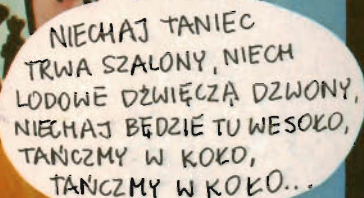 NIECHAJ TANIEC
TRWA SZALONY, NIECH
LODOWE DŹWIĘCZĄ DZWONY,
NIECHAJ BĘDZIE TU WESOŁO,
TAŃCZMY W KOŁO,
TAŃCZMY W KOŁO...